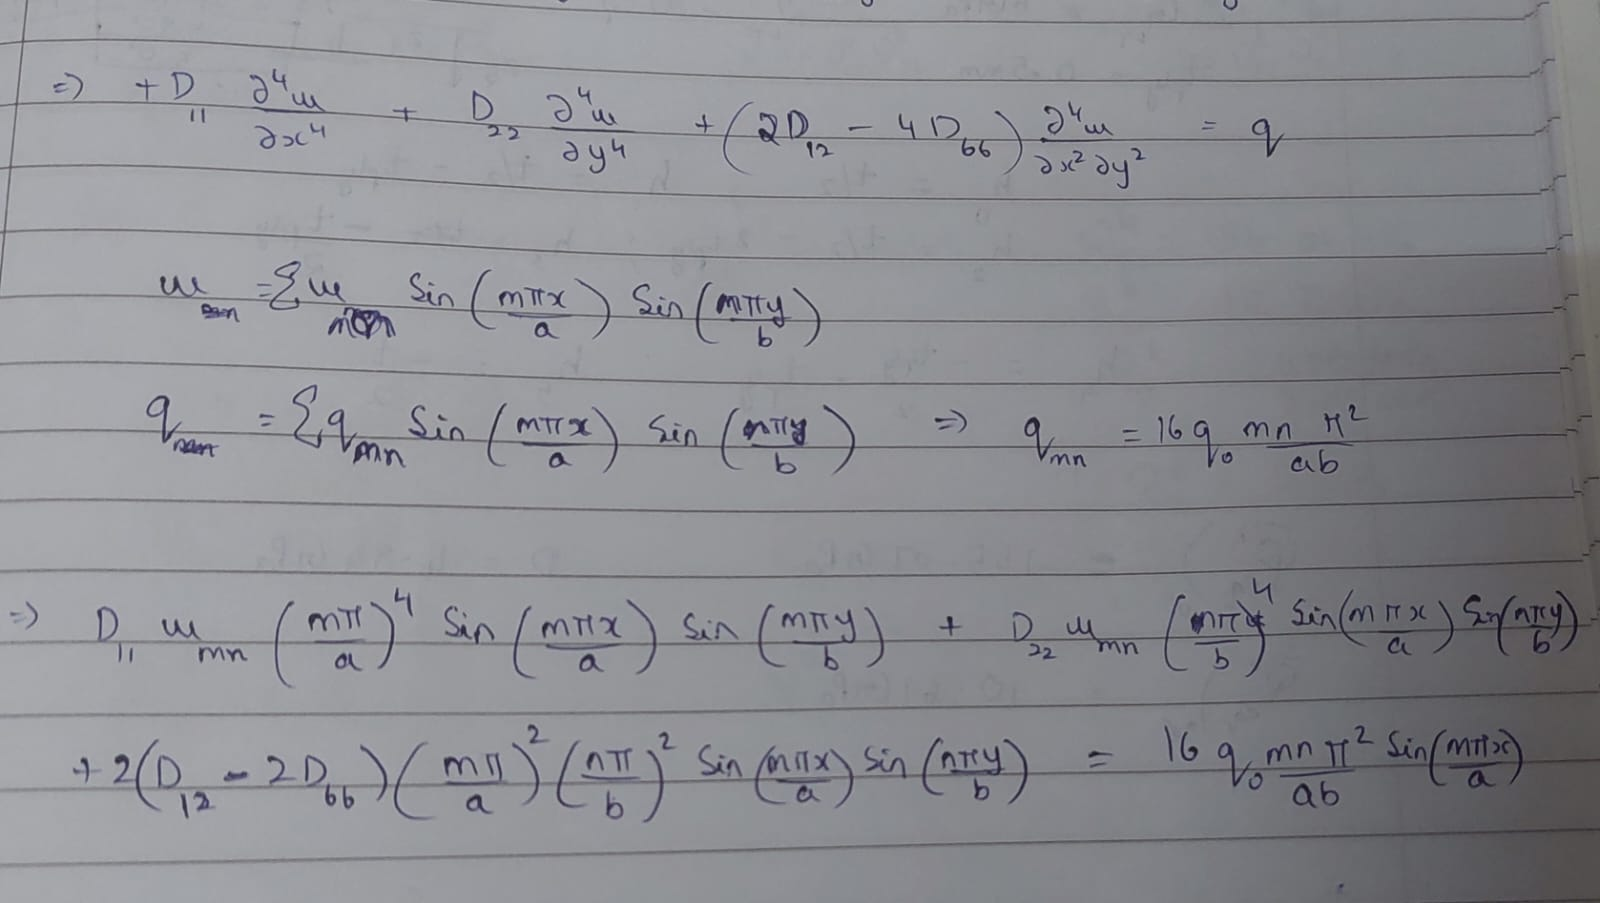 ⇒ + D₁₁ ∂⁴w/∂x⁴ + D₂₂ ∂⁴w/∂y⁴ + (2D₁₂ − 4D₆₆) ∂⁴w/∂x²∂y² = q
w = Σ w_mn Sin(mπx/a) Sin(mπy/b)
q = Σ q_mn Sin(mπx/a) Sin(nπy/b) ⇒ q_mn = 16 q₀ mn π²/ab
⇒ D₁₁ w_mn (mπ/a)⁴ Sin(mπx/a) Sin(mπy/b) + D₂₂ w_mn (nπ/b)⁴ Sin(mπx/a) Sin(nπy/b)
+ 2(D₁₂ − 2D₆₆)(mπ/a)² (nπ/b)² Sin(mπx/a) Sin(nπy/b) = 16 q₀ mnπ²/ab Sin(mπx/a)